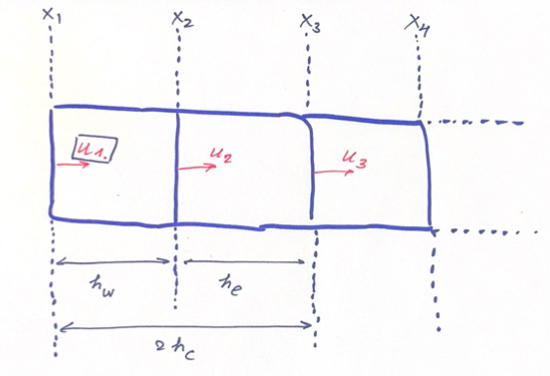 x1 x2 x3 x4
u1. u2 u3
hw he
2 hc